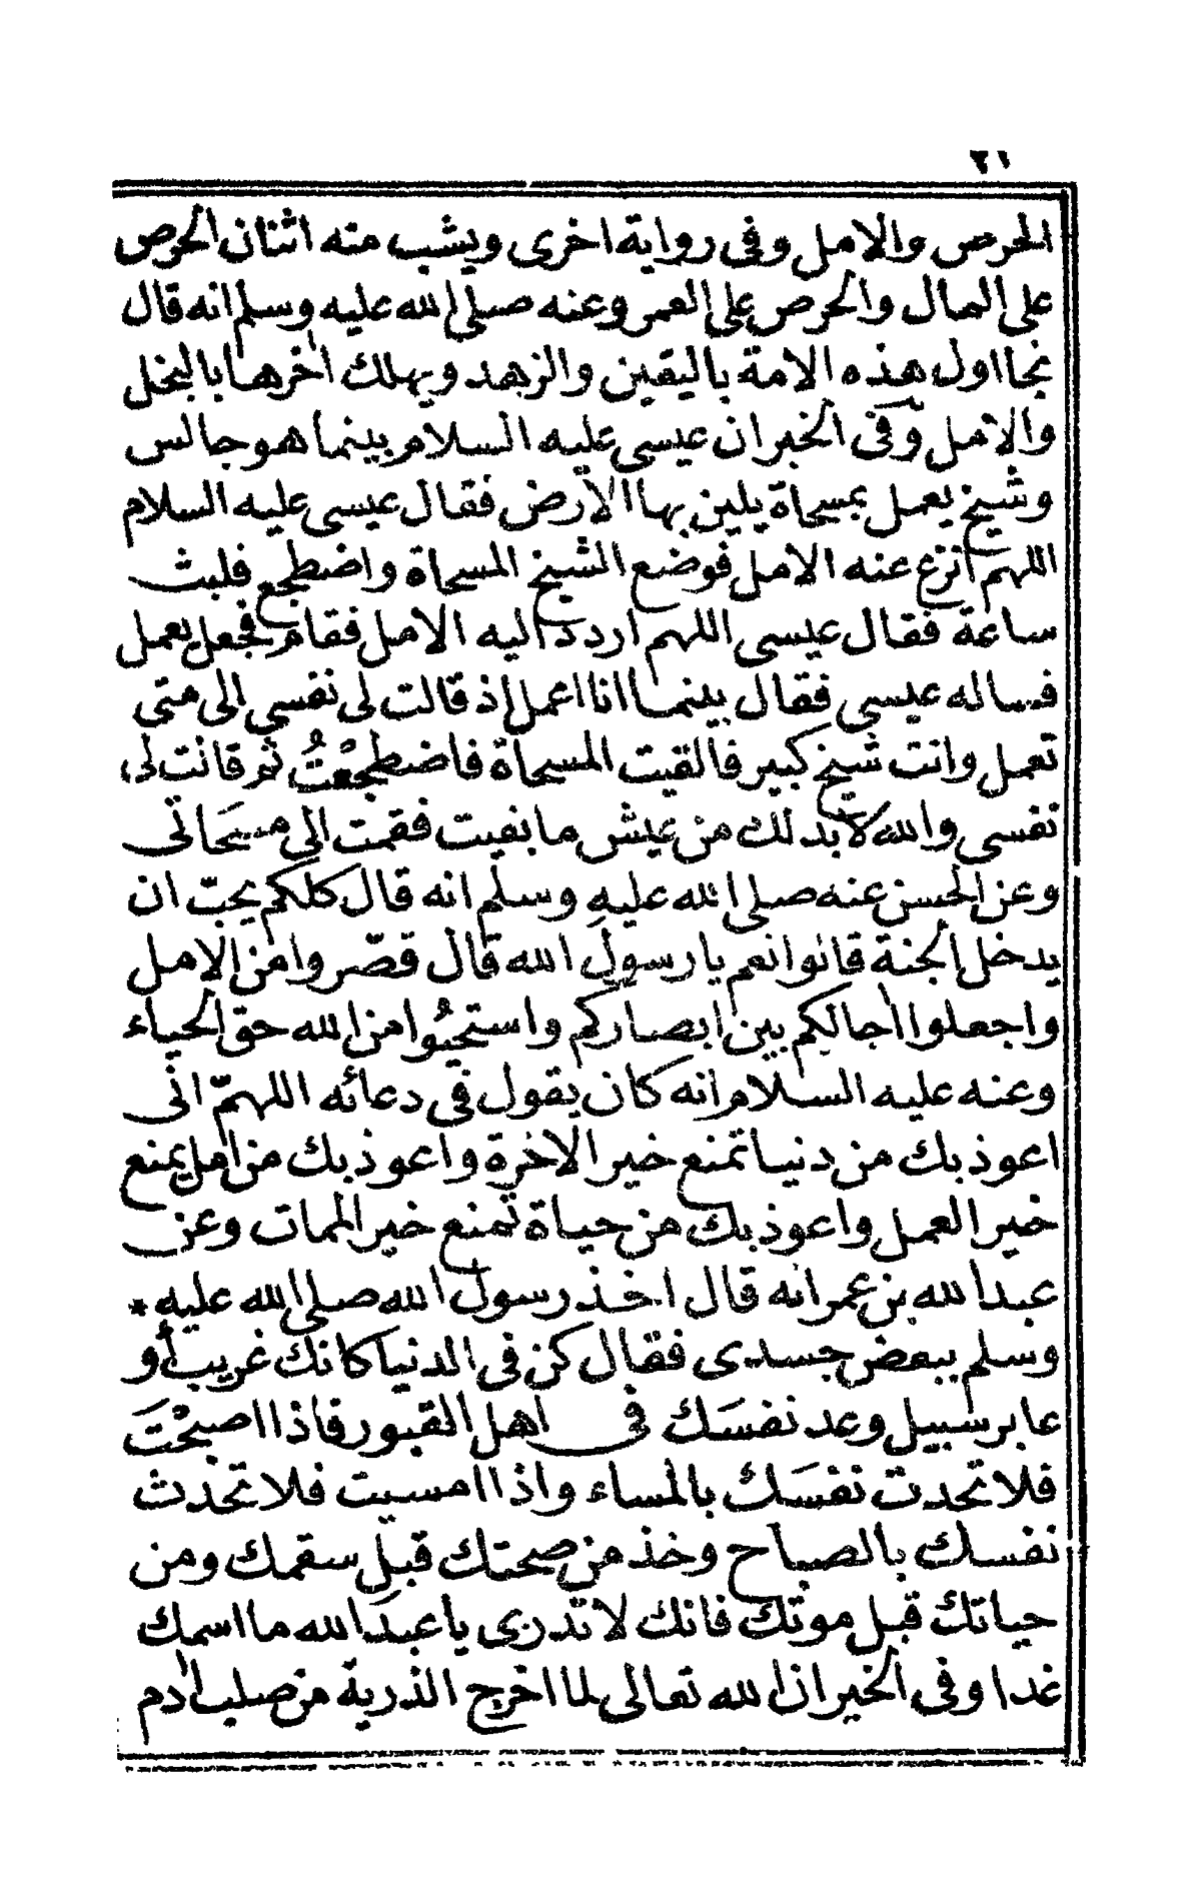 ٢١
الحرص والامل وفى رواية اخرى ويشب منه اثنان الحرص
على المال والحرص على العمر وعنه صلى الله عليه وسلم انه قال
نجا اول هذه الامة باليقين والزهد ويهلك اخرها بالبخل
والامل وفى الخبر ان عيسى عليه السلام بينما هو جالس
وشيخ يعمل بمسحاة يلين بها الارض فقال عيسى عليه السلام
اللهم انزع عنه الامل فوضع الشيخ المسحاة واضطجع فلبث
ساعة فقال عيسى اللهم اردد اليه الامل فقام فجعل يعمل
فساله عيسى فقال بينما انا اعمل اذ قالت لى نفسى الى متى
تعمل وانت شيخ كبير فالقيت المسحاة فاضطجعْتُ ثم قالت لى
نفسى والله لا بد لك من عيش ما بقيت فقمت الى مسحَاتى
وعن الحسن عنه صلى الله عليه وسلم انه قال كلكم يحبّ ان
يدخل الجنة قالوا نعم يا رسول الله قال قصّروا من الامل
واجعلوا اجالكم بين ابصاركم واستحيُوا من الله حق الحياء
وعنه عليه السلام انه كان يقول فى دعائه اللهمّ انى
اعوذ بك من دنيا تمنع خير الاخرة واعوذ بك من امل يمنع
خير العمل واعوذ بك من حياة تمنع خير الممات وعن
عبد الله بن عمر انه قال اخذ رسول الله صلى الله عليه *
وسلم ببعض جسدى فقال كن فى الدنيا كانك غريب أو
عابر سبيل وعد نفسَك فى اهل القبور فاذا اصبحْتَ
فلا تحدث نفسَك بالمساء واذا امسيت فلا تحدث
نفسك بالصباح وخذ من صحتك قبل سقمك ومن
حياتك قبل موتك فانك لا تدرى يا عبدَ الله ما اسمك
غدا وفى الخبر ان الله تعالى لما اخرج الذرية من صلب ادم